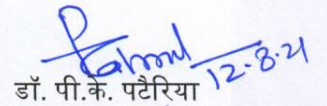 12-8-21
डॉ. पी.के. पटैरिया